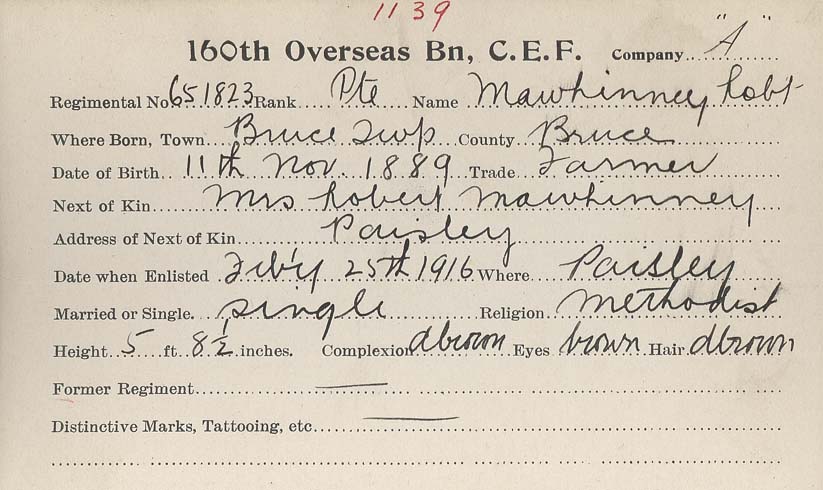 1139
160th Overseas Bn, C.E.F. Company "A"
Regimental No 651823 Rank Pte Name Mawhinney Robt
Where Born, Town Bruce Twp County Bruce
Date of Birth 11th Nov. 1889 Trade Farmer
Next of Kin Mrs Robert Mawhinney
Address of Next of Kin Paisley
Date when Enlisted Feb'y 25th 1916 Where Paisley
Married or Single. Single Religion Methodist
Height 5 ft. 8½ inches. Complexion dbrown Eyes brown Hair dbrown
Former Regiment —
Distinctive Marks, Tattooing, etc. —